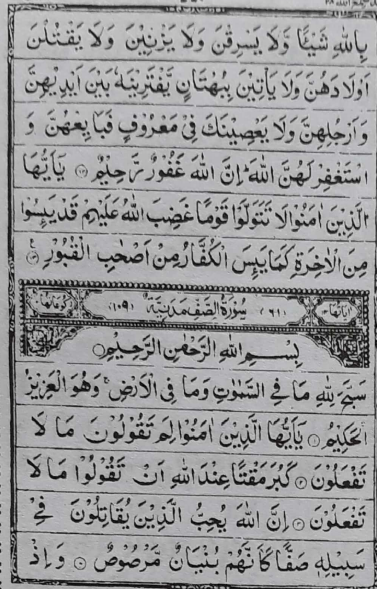 بِاللّٰهِ شَيْئًا وَّلَا يَسْرِقْنَ وَلَا يَزْنِيْنَ وَلَا يَقْتُلْنَ
اَوْلَادَهُنَّ وَلَا يَاْتِيْنَ بِبُهْتَانٍ يَّفْتَرِيْنَهٗ بَيْنَ اَيْدِيْهِنَّ
وَاَرْجُلِهِنَّ وَلَا يَعْصِيْنَكَ فِيْ مَعْرُوْفٍ فَبَايِعْهُنَّ وَ
اسْتَغْفِرْ لَهُنَّ اللّٰهَ ؕ اِنَّ اللّٰهَ غَفُوْرٌ رَّحِيْمٌ ۝۱۲ يٰۤاَيُّهَا
الَّذِيْنَ اٰمَنُوْا لَا تَتَوَلَّوْا قَوْمًا غَضِبَ اللّٰهُ عَلَيْهِمْ قَدْ يَىِٕسُوْا
مِنَ الْاٰخِرَةِ كَمَا يَىِٕسَ الْكُفَّارُ مِنْ اَصْحٰبِ الْقُبُوْرِ ۝۱۳
اٰيَاتُهَا (٦١) سُوْرَةُ الصَّفِّ مَدَنِيَّةٌ (١٠٩) رُكُوْعَاتُهَا
بِسْمِ اللّٰهِ الرَّحْمٰنِ الرَّحِيْمِ
سَبَّحَ لِلّٰهِ مَا فِي السَّمٰوٰتِ وَمَا فِي الْاَرْضِ ۚ وَهُوَ الْعَزِيْزُ
الْحَكِيْمُ ۝۱ يٰۤاَيُّهَا الَّذِيْنَ اٰمَنُوْا لِمَ تَقُوْلُوْنَ مَا لَا
تَفْعَلُوْنَ ۝۲ كَبُرَ مَقْتًا عِنْدَ اللّٰهِ اَنْ تَقُوْلُوْا مَا لَا
تَفْعَلُوْنَ ۝۳ اِنَّ اللّٰهَ يُحِبُّ الَّذِيْنَ يُقَاتِلُوْنَ فِيْ
سَبِيْلِهٖ صَفًّا كَاَنَّهُمْ بُنْيَانٌ مَّرْصُوْصٌ ۝۴ وَاِذْ